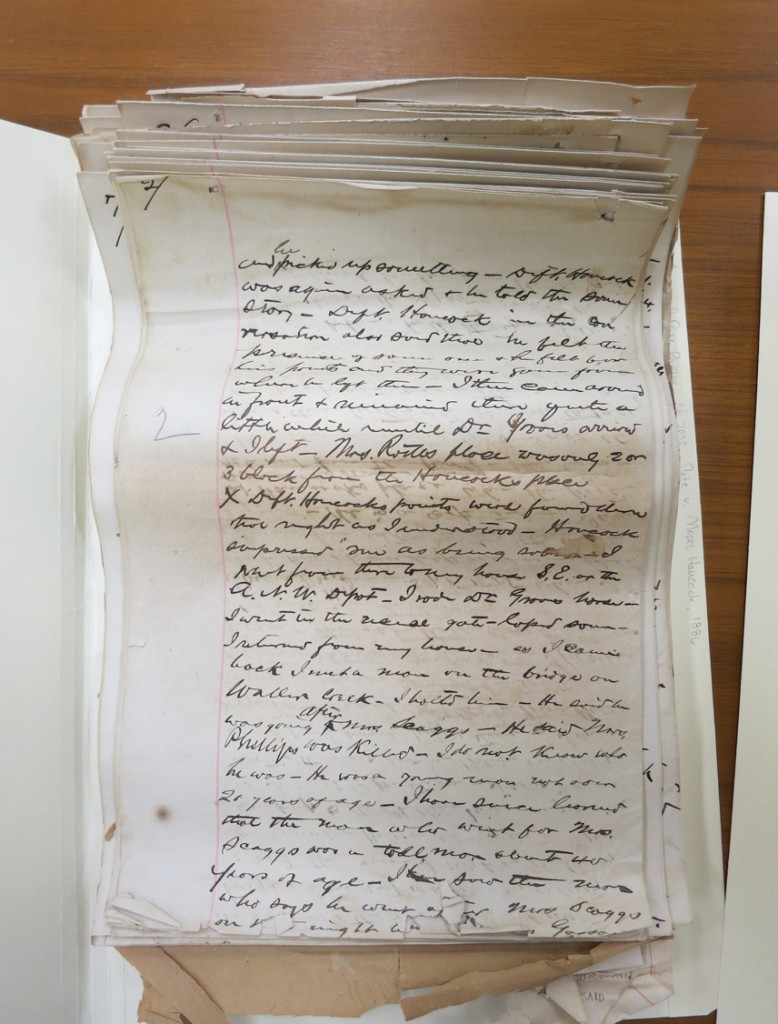 2
he
and picked up something – Deft. Hancock
was again asked & he told the same
story – Deft. Hancock in the con
versation also said that he felt the
presence of some one & he felt for
his pants and they were gone from
where he left them – I then came around
in front & remained there quite a
little while until Dr arrived
& I left – Mrs. place was only 2 or
3 block from the Hancocks place
X Deft. Hancocks pants were found there
that night as I understood – Hancock
impressed me as being sober – I
went from there to my house S.E. of the
A. N. W. Depot – I rode Dr Graves horse –
I went in the usual gate – loped some –
I returned from my house – as I came
back I met a man on the bridge on
Waller Creek – I halted him – He said he
was going after Mrs Scaggs – He said Mrs.
Phillips was killed – I do not know who
he was – He was a young man not over
20 years of age – I have since learned
that the man who went for Mrs.
Scaggs was a tall man about 40
years of age – I saw the man
who says he went after Mrs. Scaggs
on night
2
v. Moses Hancock, 1886
SAID